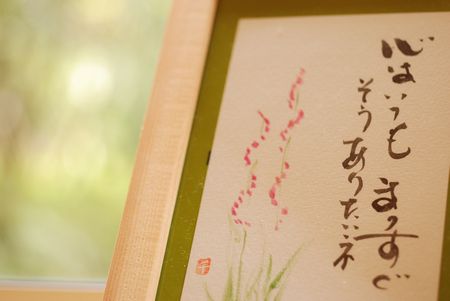 心はいつも まっすぐ
そうありたいネ
千